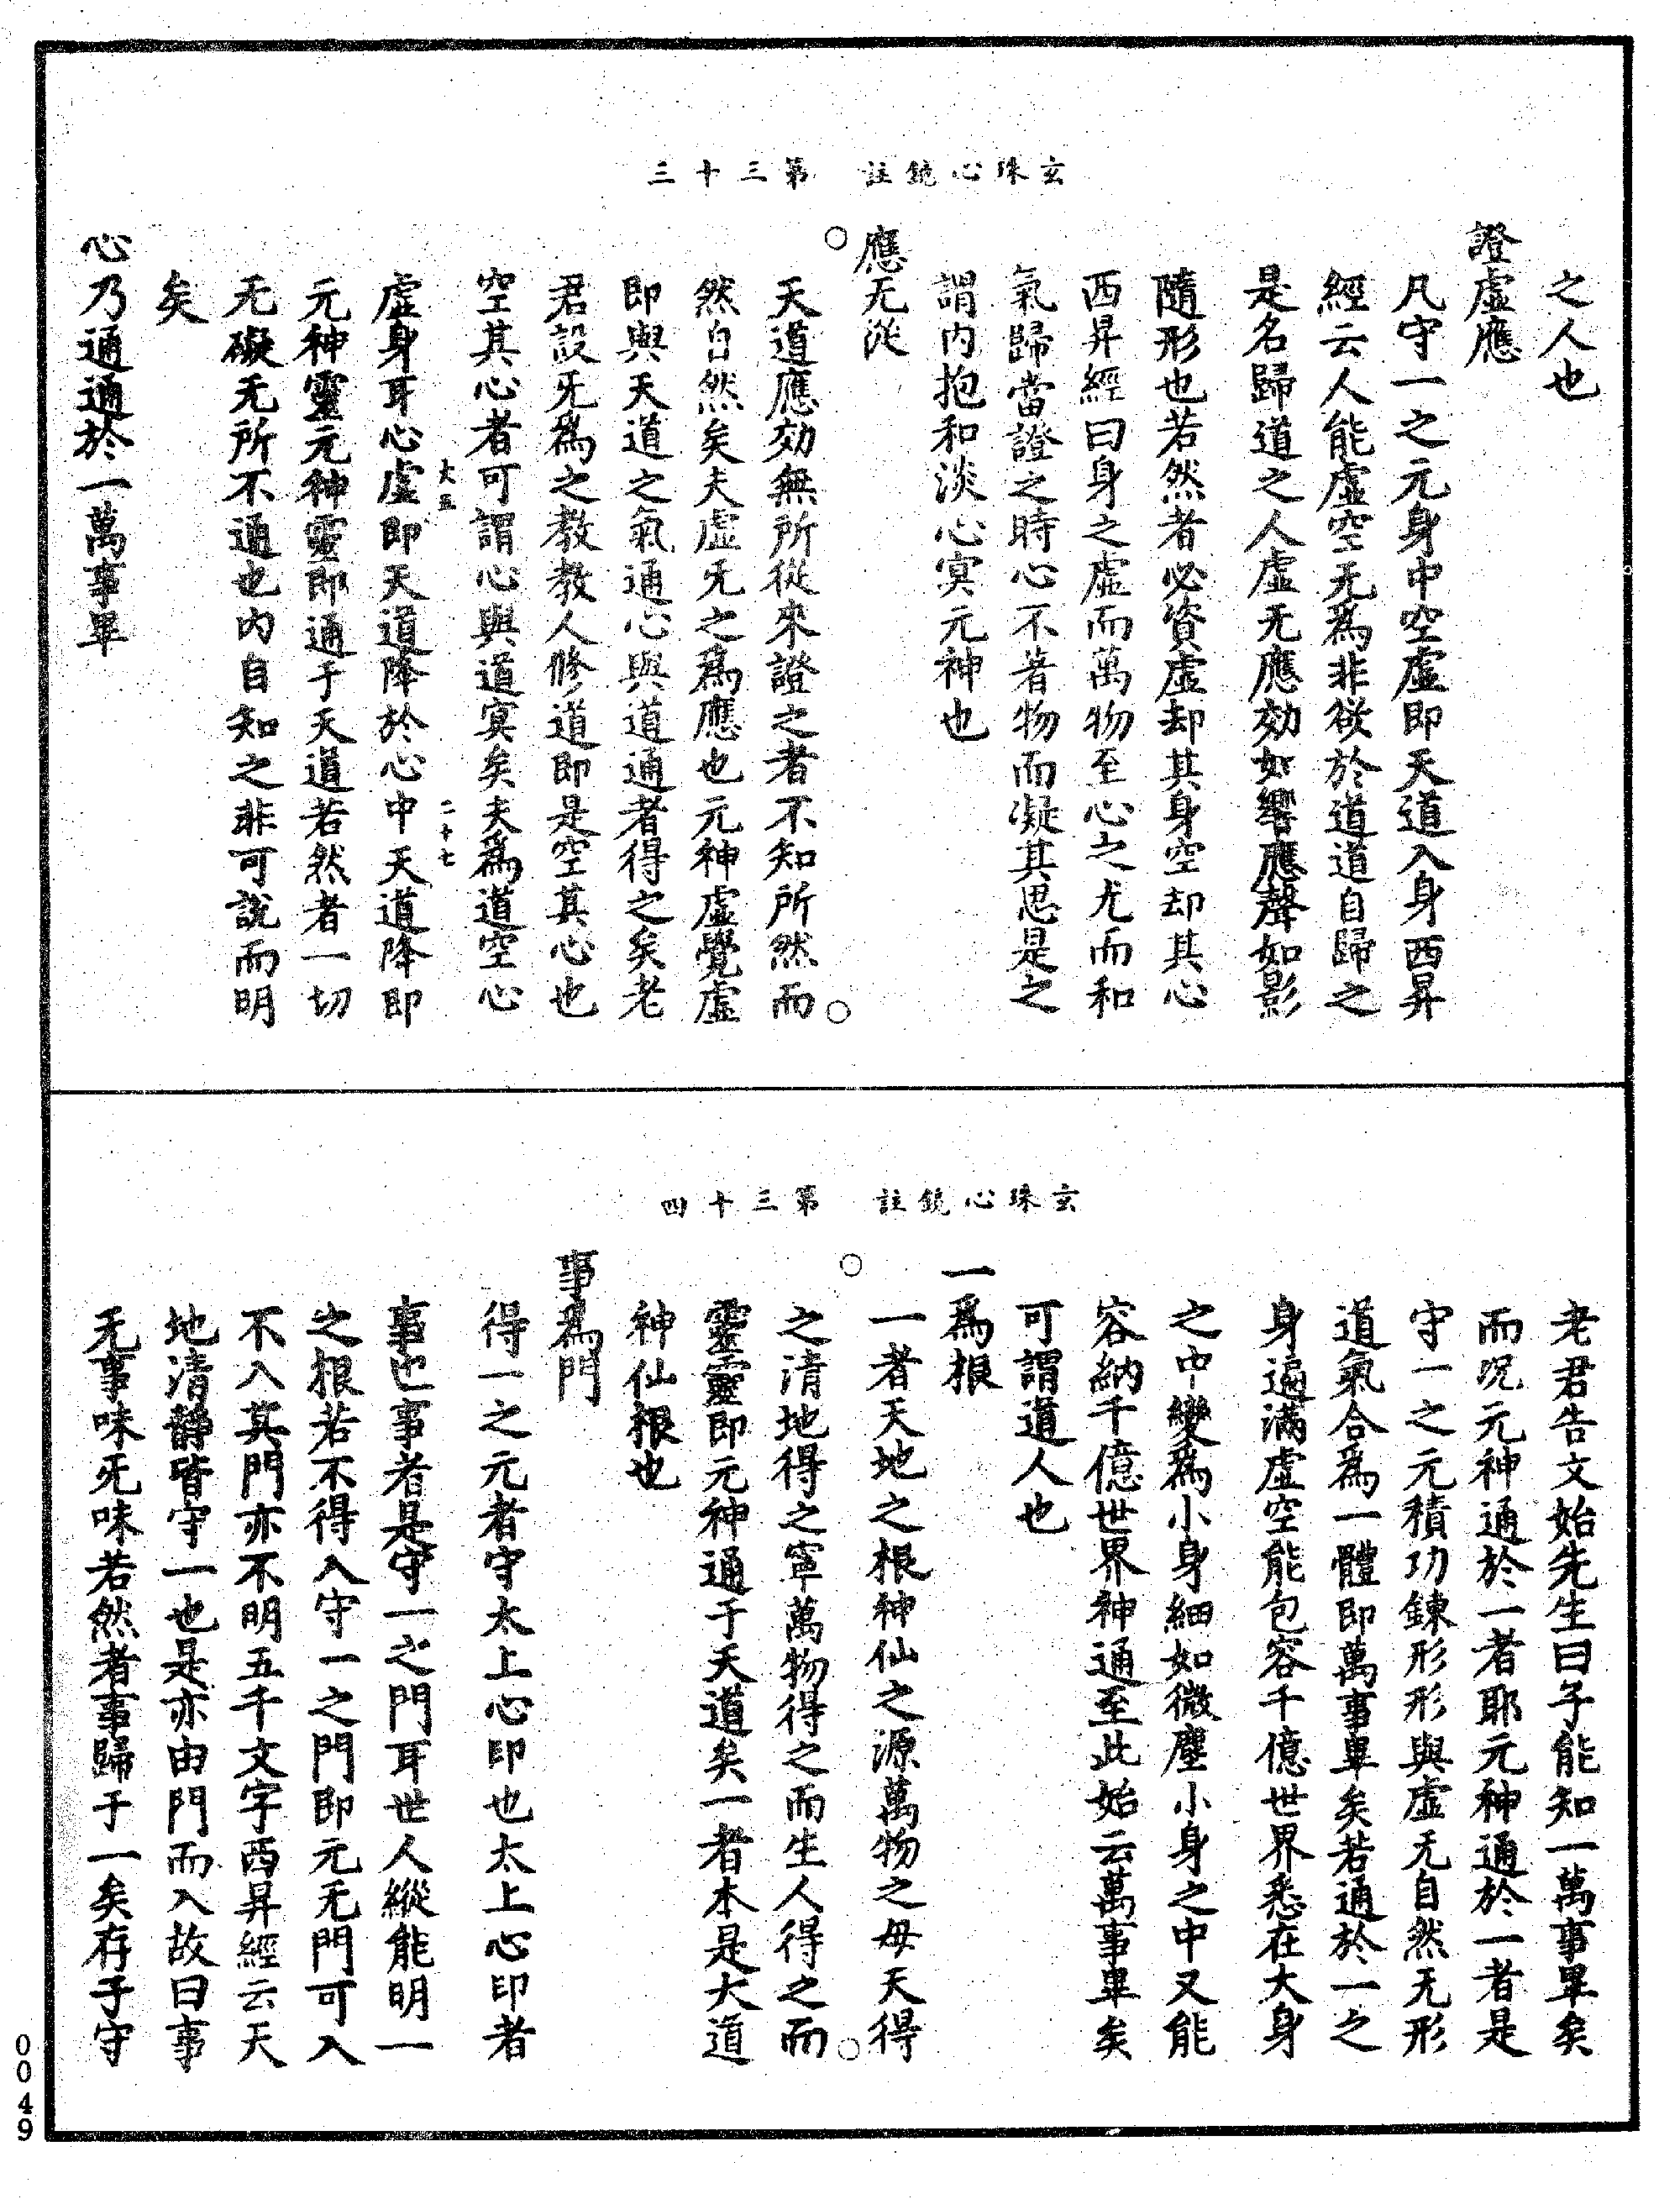 玄珠心鏡註　第三十三
之人也
證虛應
凡守一之元身中空虛即天道入身西昇
經云人能虛空无爲非欲於道道自歸之
是名歸道之人虛无應効如響應聲如影
隨形也若然者必資虛却其身空却其心
西昇經曰身之虛而萬物至心之尤而和
氣歸當證之時心不著物而凝其思是之
謂内抱和淡心㝠元神也
應无從
天道應効無所從來證之者不知所然而
然自然矣夫虛旡之爲應也元神虛覺虛
即與天道之氣通心與道通者得之矣老
君設旡爲之教教人修道即是空其心也
空其心者可謂心與道㝠矣夫爲道空心
大五　二十七
虛身耳心虛即天道降於心中天道降即
元神靈元神靈即通于天道若然者一切
无礙无所不通也内自知之非可說而明
矣
心乃通通於一萬事畢
玄珠心鏡註　第三十四
老君告文始先生曰子能知一萬事畢矣
而况元神通於一者耶元神通於一者是
守一之元積功鍊形形與虛无自然无形
道氣合爲一體即萬事畢矣若通於一之
身遍滿虛空能包容千億世界悉在大身
之中變爲小身細如微塵小身之中又能
容納千億世界神通至此始云萬事畢矣
可謂道人也
一爲根
一者天地之根神仙之源萬物之母天得
之清地得之寧萬物得之而生人得之而
靈靈即元神通于天道矣一者本是大道
神仙根也
事爲門
得一之元者守太上心印也太上心印者
事也事者是守一之門耳世人縱能明一
之根若不得入守一之門即元无門可入
不入其門亦不明五千文字西昇經云天
地清靜皆守一也是亦由門而入故曰事
无事味旡味若然者事歸于一矣存子守
0049